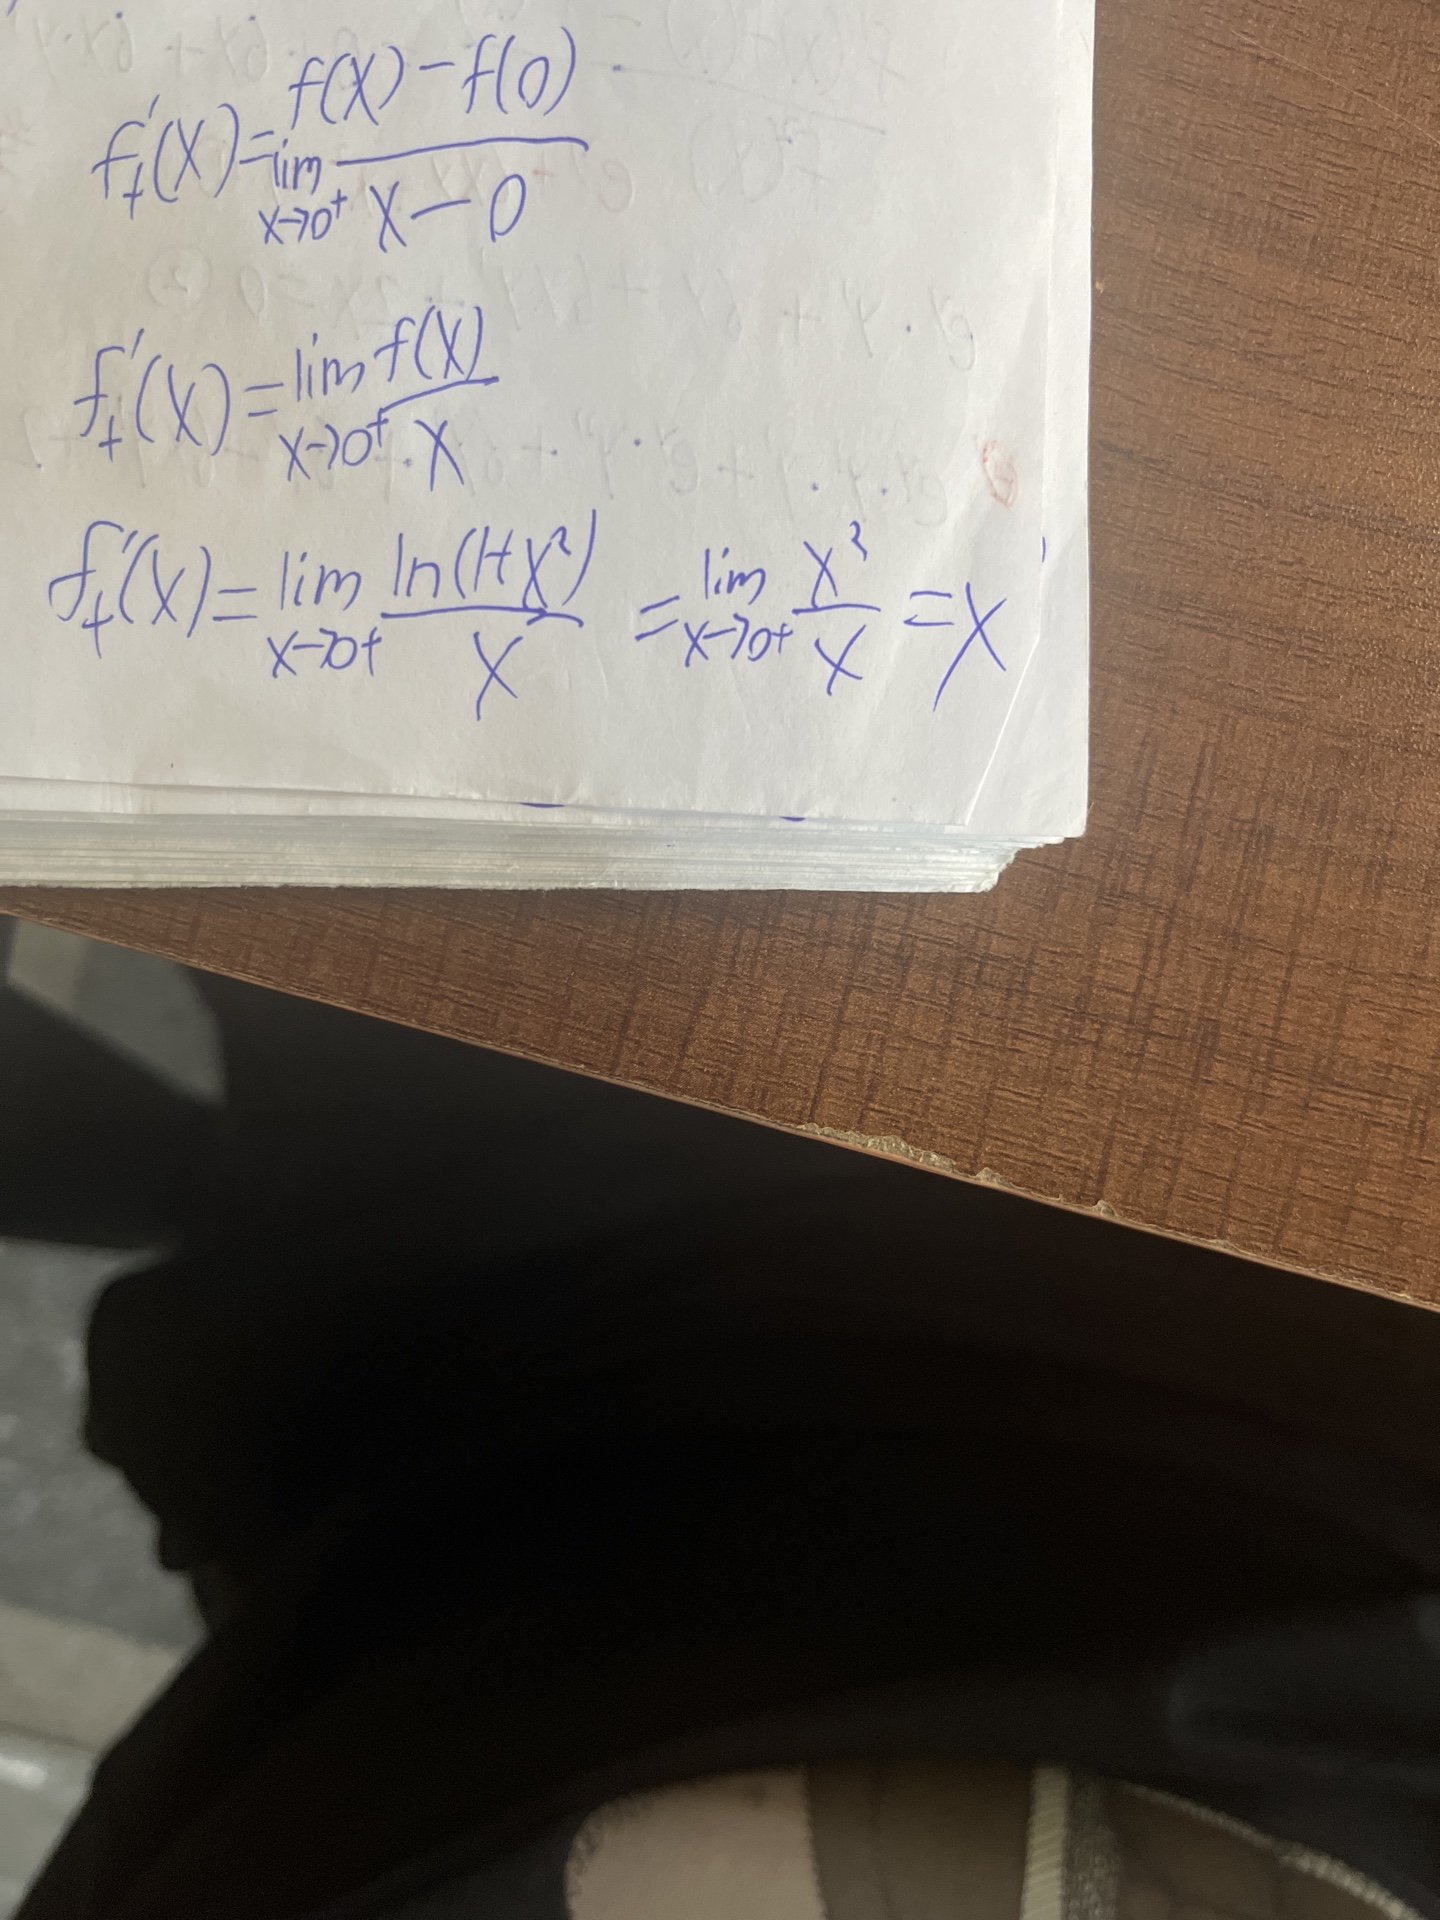 f₊'(x) = lim x→0⁺ (f(x) - f(0))/(x - 0)
f₊'(x) = lim x→0⁺ f(x)/x
f₊'(x) = lim x→0⁺ ln(1+x²)/x = lim x→0⁺ x²/x = x